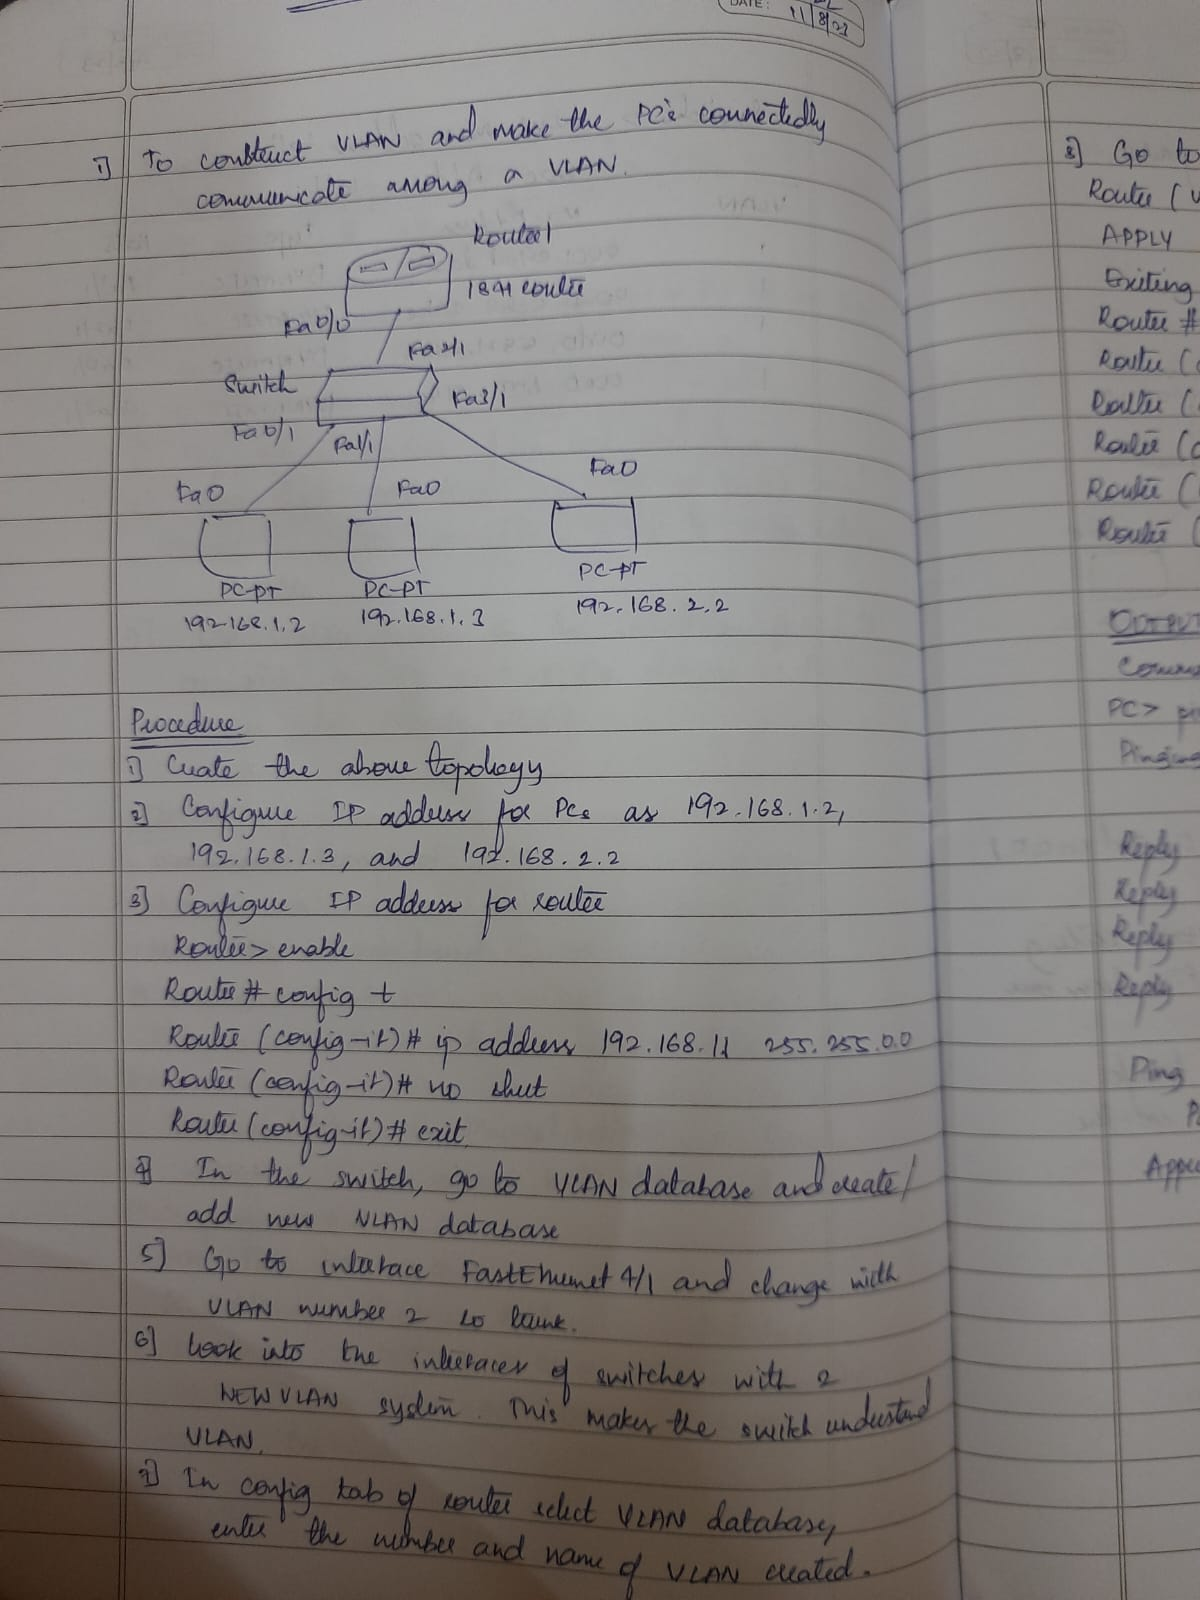 DATE: 11/8/23
1] To construct VLAN and make the PC's connectedly
communicate among a VLAN.
Router1
1841 router
Fa0/0
Fa4/1
Switch
Fa3/1
Fa0/1
Fa1/1
Fa0
Fa0
Fa0
PC-PT
PC-PT
PC-PT
192.168.1.2
192.168.1.3
192.168.2.2
Procedure
1] Create the above topology
2] Configure IP address for PCs as 192.168.1.2,
192.168.1.3, and 192.168.2.2
3] Configure IP address for router
Router> enable
Router # config t
Router (config-if)# ip address 192.168.1.1 255.255.0.0
Router (config-if)# no shut
Router (config-if)# exit
4] In the switch, go to VLAN database and create/
add new VLAN database
5] Go to interface FastEthernet 4/1 and change with
VLAN number 2 to trunk.
6] Look into the interfaces of switches with 2
NEWVLAN system. This makes the switch understand
VLAN.
7] In config tab of router select VLAN database,
enter the number and name of VLAN created.
8] Go to
Router (
APPLY
Exiting
Router #
Router (
Router (
Router (
Router (
Router (
OUTPUT
PC>
Pinging
Reply
Reply
Reply
Reply
Ping